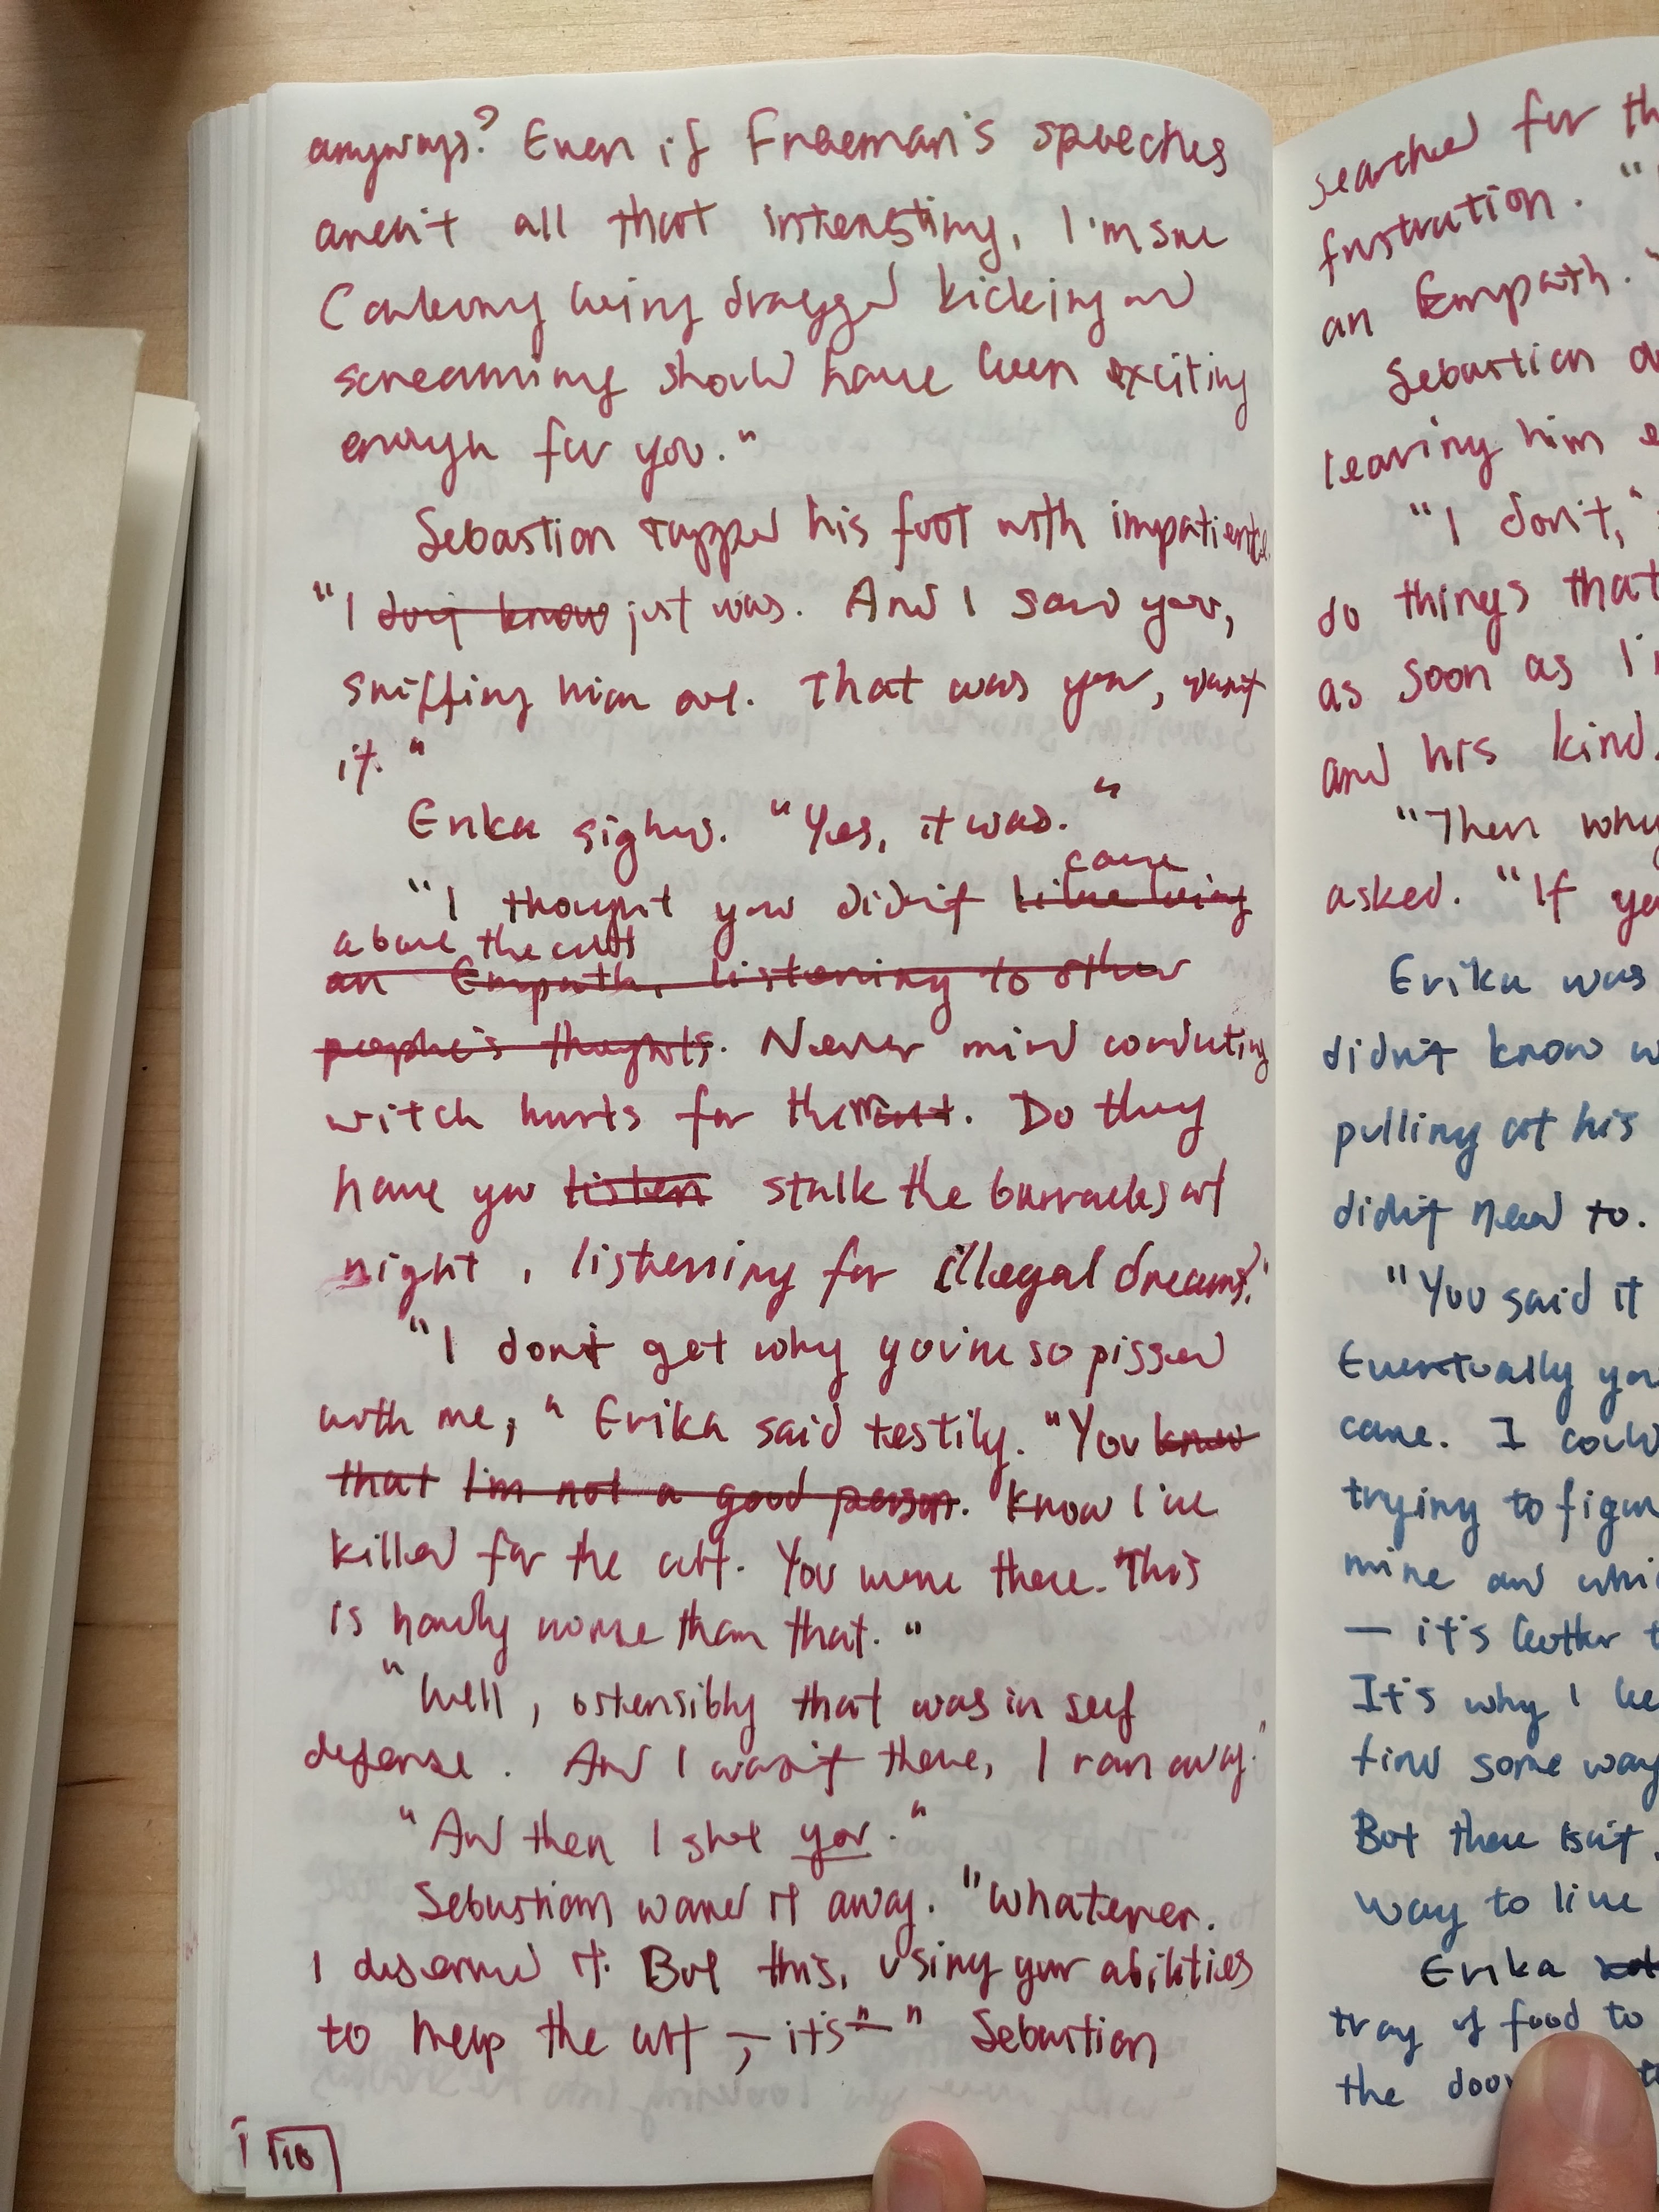 anyways? Even if Freeman's speeches
aren't all that interesting, I'm sure
being dragged kicking and
screaming should have been exciting
enough for you."
Sebastian tapped his foot with impatience.
"I don't know just was. And I saw you,
sniffing him out. That was you, wasn't
it."
Erika sighed. "Yes, it was."
"I thought you didn't like being
care
about the cult
an Empath, listening to other
people's thoughts. Never mind conducting
witch hunts for them. Do they
have you listen stalk the barracks at
night, listening for illegal dreams?"
"I don't get why you're so pissed
with me," Erika said testily. "You know
that I'm not a good person. Know I've
killed for the cult. You were there. This
is hardly worse than that."
"Well, ostensibly that was in self
defense. And I wasn't there, I ran away."
"And then I shot you."
Sebastian waved it away. "Whatever.
I deserved it. But this, using your abilities
to help the cult, — it's—" Sebastian
118
searched for th
frustration. "
an Empath."
Sebastian
leaving him e
"I don't,"
do things that
as soon as I'
and his kind.
"Then why
asked. "If yo
Erika was
didn't know w
pulling at his
didn't need to.
"You said it
Eventually you
care. I could
trying to figur
mine and whi
— it's better t
It's why I ke
find some way
But there isn't
way to live
Erika
tray of food to
the door